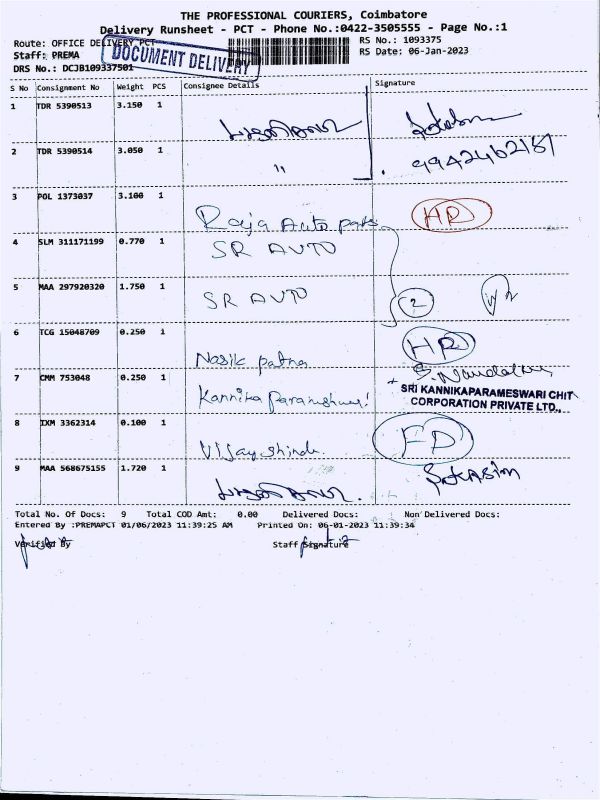 THE PROFESSIONAL COURIERS, Coimbatore
Delivery Runsheet - PCT - Phone No.:0422-3505555 - Page No.:1
Route: OFFICE DELIVERY PCT RS No.: 1093375
Staff: PREMA DOCUMENT DELIVERY RS Date: 06-Jan-2023
DRS No.: DCJB109337501
S No Consignment No Weight PCS Consignee Details Signature
1 TDR 5390513 3.150 1
2 TDR 5390514 3.050 1 9942462187
"
3 POL 1373037 3.100 1
Raja Auto parts HD
4 SLM 311171199 0.770 1 SR AUTO
5 MAA 297920320 1.750 1 SR AUTO 2
6 TCG 15048709 0.250 1 HD
Nasik patna
7 CMM 753048 0.250 1 SRI KANNIKAPARAMESWARI CHIT
Kannika CORPORATION PRIVATE LTD.,
8 IXM 3362314 0.100 1 FD
Vijay shinde
9 MAA 568675155 1.720 1
Total No. Of Docs: 9 Total COD Amt: 0.00 Delivered Docs: Non Delivered Docs:
Entered By :PREMAPCT 01/06/2023 11:39:25 AM Printed On: 06-01-2023 11:39:34
Verified By Staff Signature